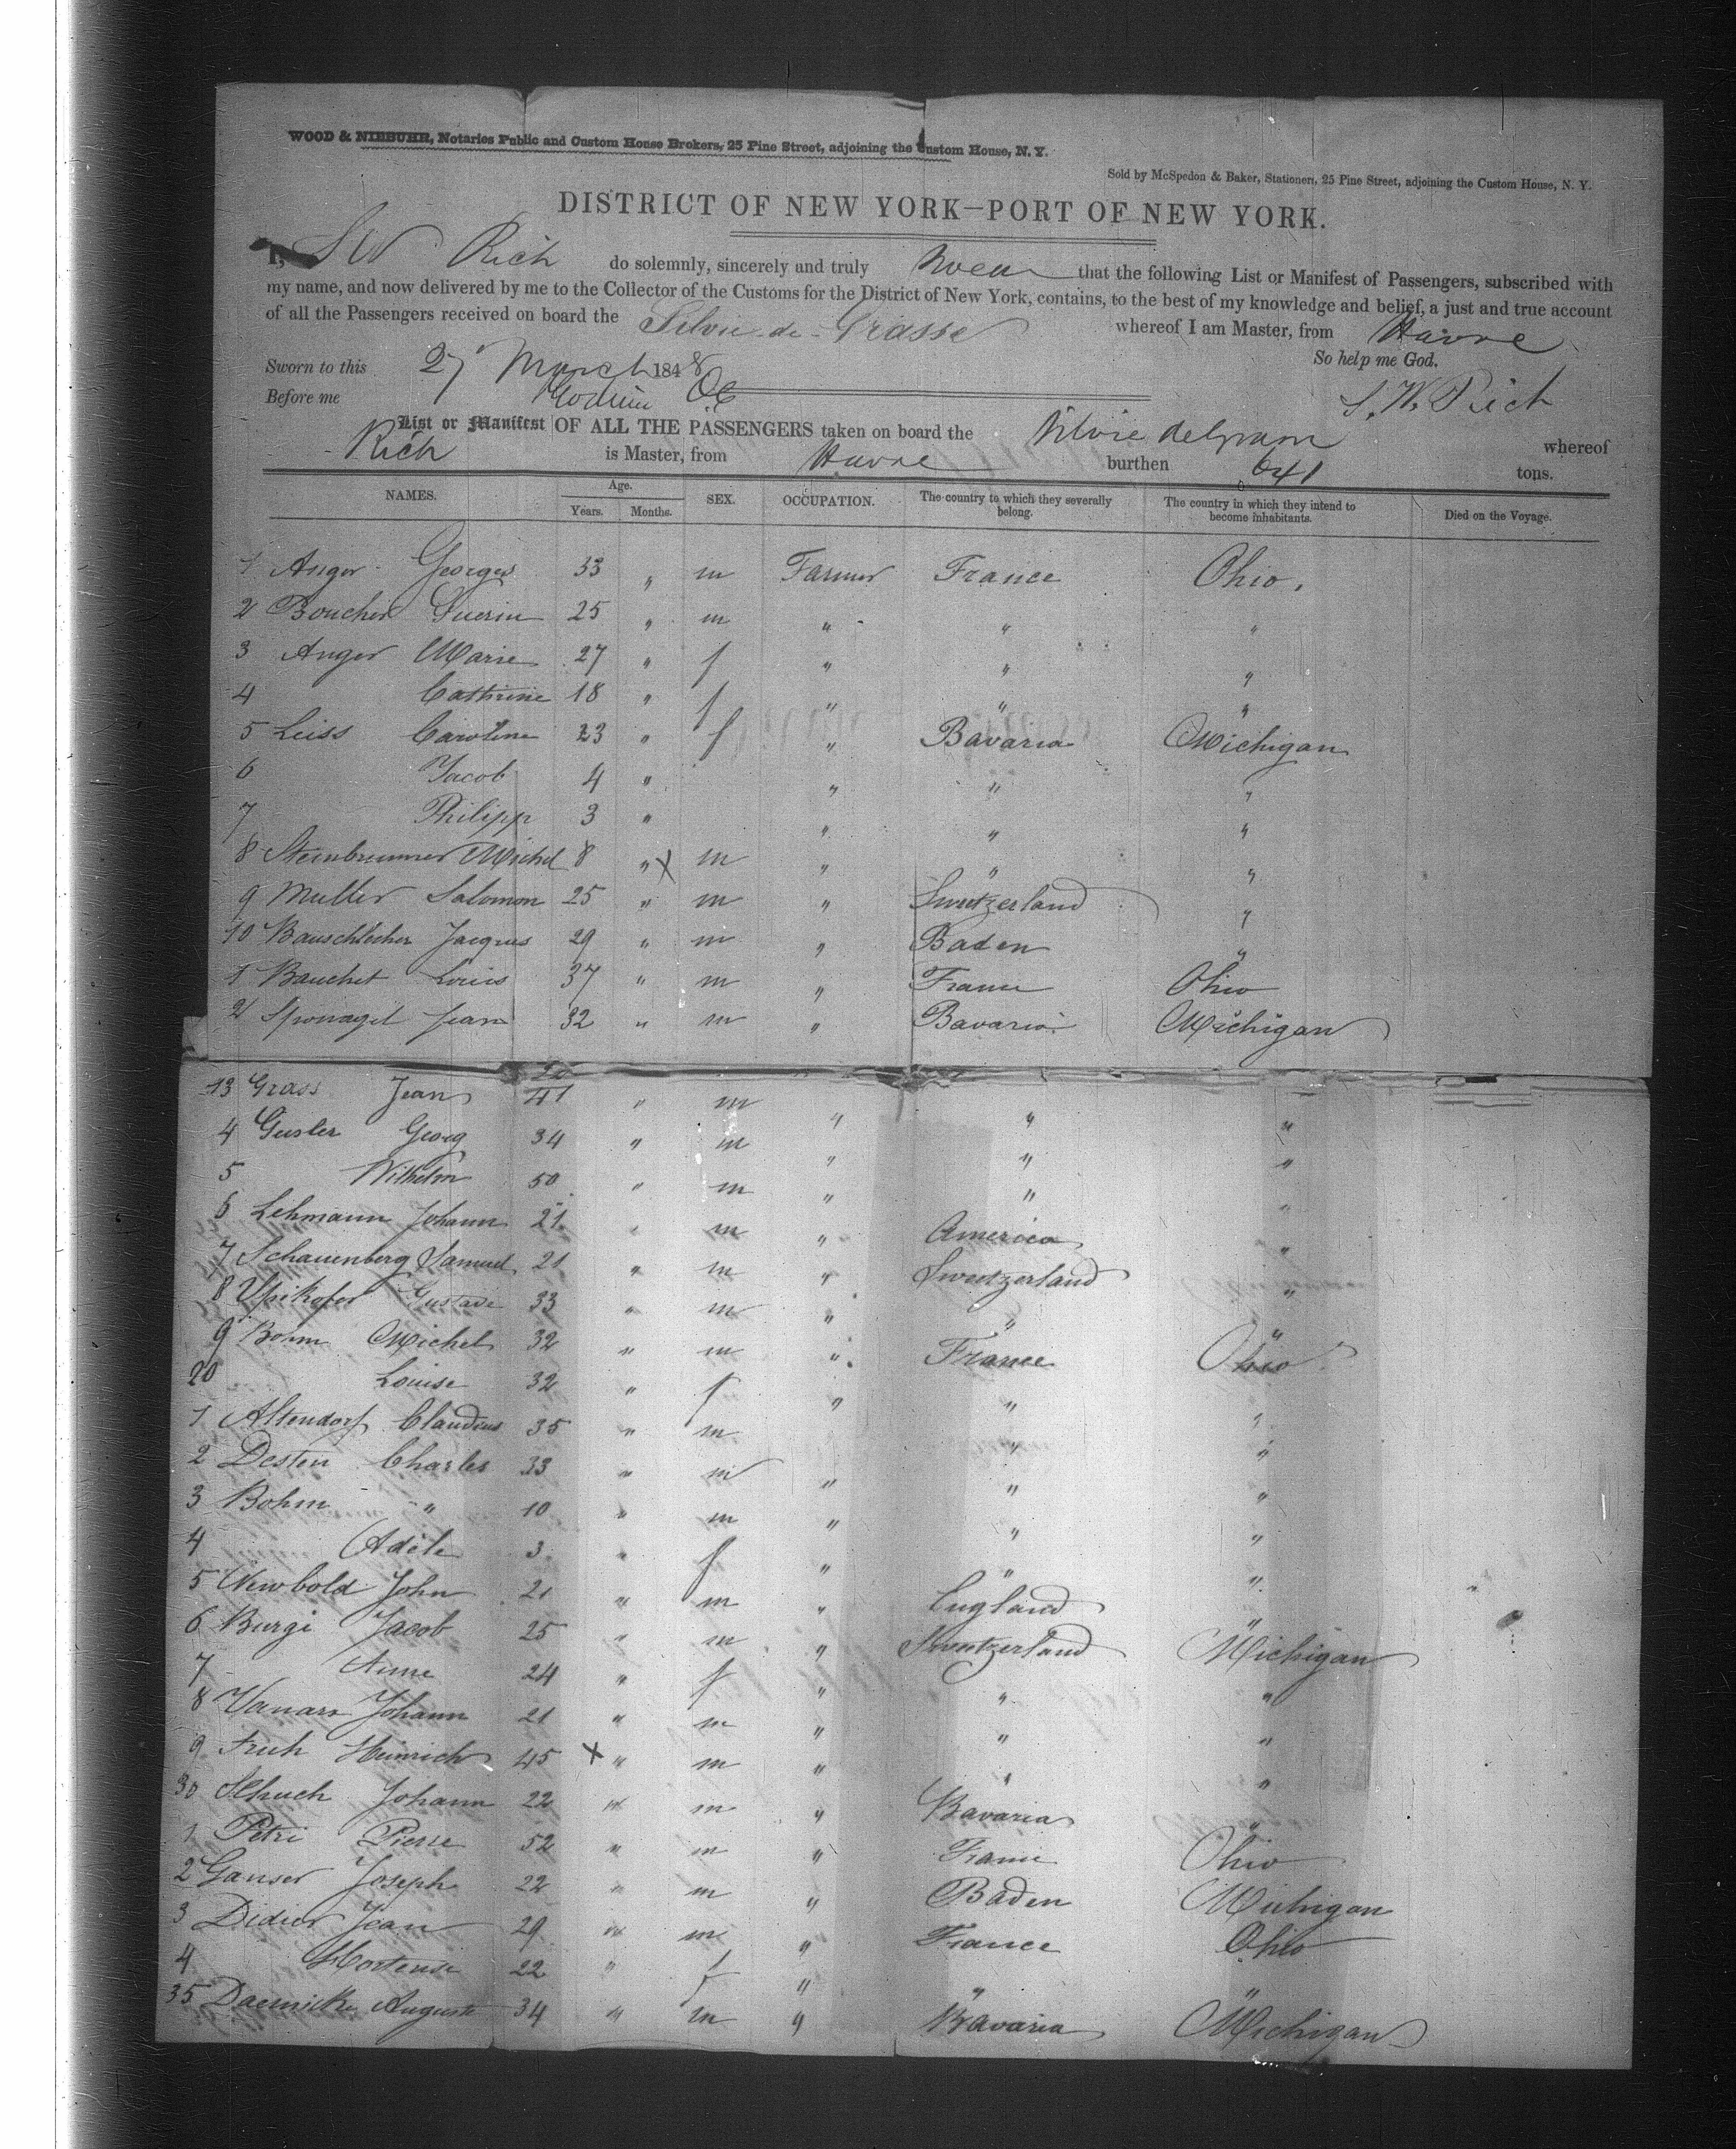 WOOD & NIEBUHR, Notaries Public and Custom House Brokers, 25 Pine Street, adjoining the Custom House, N. Y.
Sold by McSpedon & Baker, Stationers, 25 Pine Street, adjoining the Custom House, N. Y.
DISTRICT OF NEW YORK—PORT OF NEW YORK.
I, S W Rich do solemnly, sincerely and truly swear that the following List or Manifest of Passengers, subscribed with
my name, and now delivered by me to the Collector of the Customs for the District of New York, contains, to the best of my knowledge and belief, a just and true account
of all the Passengers received on board the Silvie de Grasse whereof I am Master, from Havre
Sworn to this 27 March 1848 So help me God.
Before me S. W. Rich
List or Manifest OF ALL THE PASSENGERS taken on board the Silvie de Grasse whereof
Rich is Master, from Havre burthen 641 tons.
NAMES. Age. Years. Months. SEX. OCCUPATION. The country to which they severally belong. The country in which they intend to become inhabitants. Died on the Voyage.
1 Anger Georges 33 " m Farmer France Ohio.
2 Boucher Guerin 25 " m " " "
3 Anger Marie 27 " f " " "
4 Cathrine 18 " f " " "
5 Leiss Caroline 23 " f " Bavaria Michigan
6 Jacob 4 " " " "
7 Philipp 3 " " " "
8 Steinbrunner Michel 8 " X m " " "
9 Muller Salomon 25 " m " Swetzerland "
10 Bauschlicher Jacques 29 " m " Baden "
1 Bauchet Louis 37 " m " France Ohio
2 Sponagel Jean 32 " m " Bavaria Michigan
13 Grass Jean 41 " m " " "
4 Geisler Georg 34 " m " " "
5 Wilhelm 50 " m " " "
6 Lehmann Johann 21 " m " America "
7 Schauenberg Samuel 21 " m " Swetzerland "
8 Gustave 33 " m " " "
9 Bohm Michel 32 " m " France Ohio
20 Louise 32 " f " " "
1 Altendorf Claudius 35 " m " "
2 Desten Charles 33 " m " " "
3 Bohm " 10 " m " " "
4 Adèle 3 " f " " "
5 Newbold John 21 " m " England "
6 Burgi Jacob 25 " m " Swetzerland Michigan
7 Anne 24 " f " " "
8 Johann 21 " m " " "
9 Fruh Heinrich 45 X " m " " "
30 Schuch Johann 22 " m " Bavaria "
1 Petri Pierre 52 " m " France Ohio
2 Ganser Joseph 22 " m " Baden Michigan
3 Didier Jean 29 " m " France Ohio
4 Hortense 22 " f " " "
35 Auguste 34 " m " Bavaria Michigan